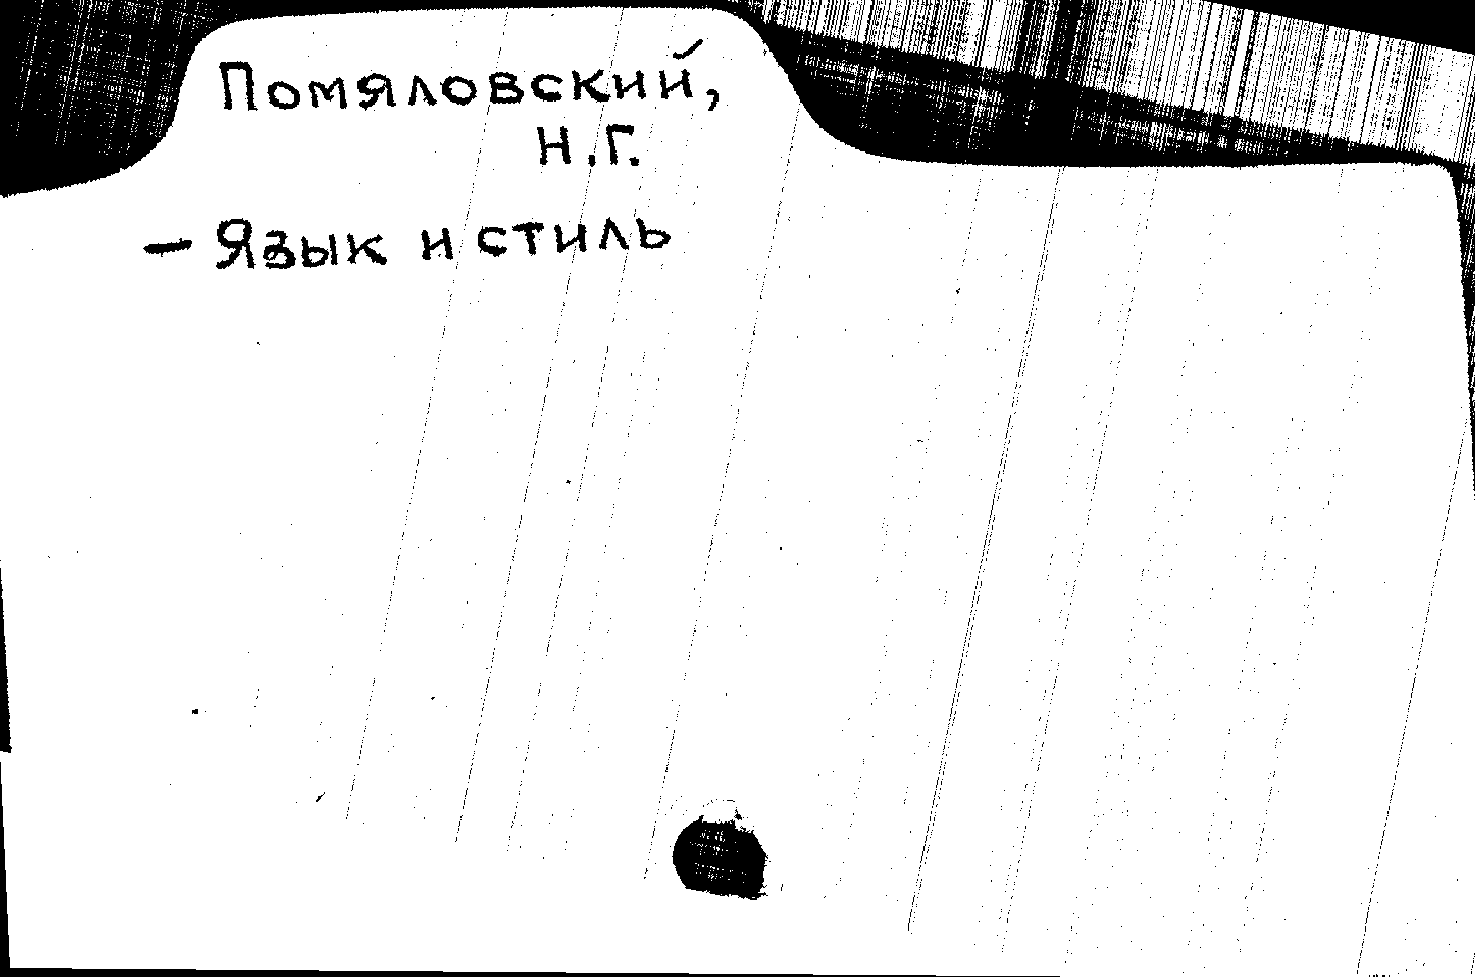 Помяловский,
Н.Г.
— Язык и стиль